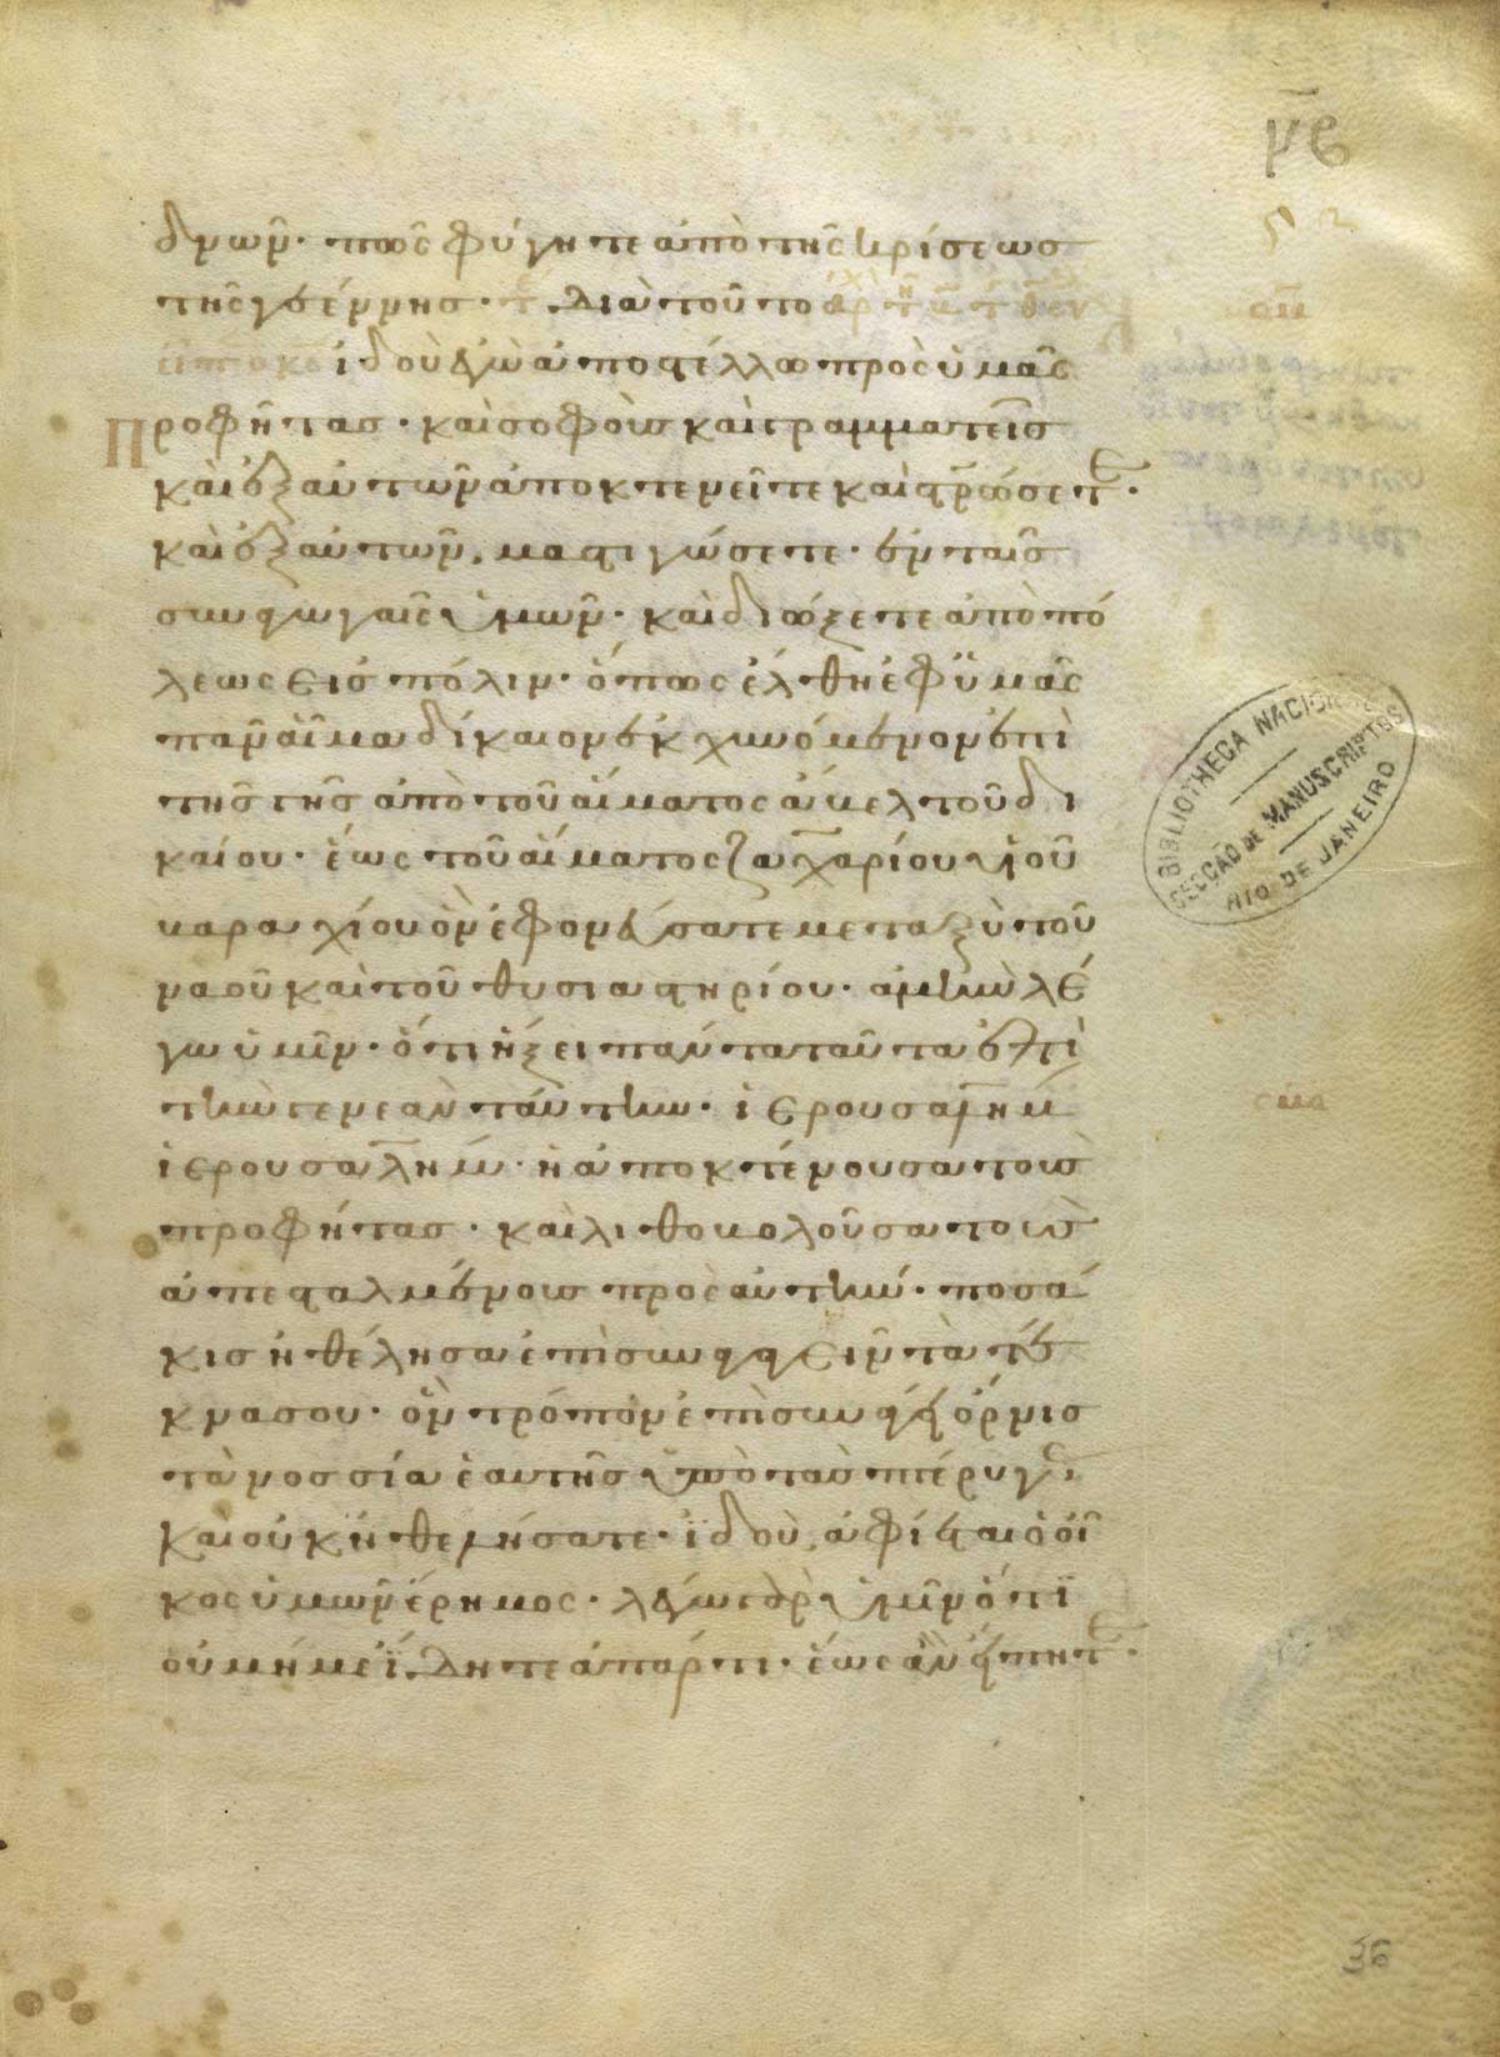 με
δνῶν· πῶς φύγητε ἀπὸ τῆς κρίσεωσ
τῆς γεέννησ· τε διὰ τοῦτο
ἰδοὺ ἐγὼ ἀποστέλλω πρὸς ὑμᾶς
προφήτασ· καὶ σοφοὺσ καὶ γραμματεῖσ
καὶ ἐξ αὐτῶν ἀποκτενεῖτε καὶ στρώσετε·
καὶ ἐξ αὐτῶν, μαστιγώσετε· ἐν ταῖσ
συναγωγαῖς ὑμῶν· καὶ διώξετε ἀπὸ πό
λεως εἰσ πόλιν· ὅπως ἔλθη ἐφ ὑμᾶς
πᾶν αἷμα δίκαιον ἐκχυνόμενον ἐπὶ
τῆσ γῆσ ἀπὸ τοῦ αἵματος ἄβελ τοῦ δι
καίου· ἕως τοῦ αἵματος ζαχαρίου υἱοῦ
βαραχίου ὃν ἐφονεύσατε μεταξὺ τοῦ
ναοῦ καὶ τοῦ θυσιαστηρίου· ἀμὴν λέ
γω ὑμῖν· ὅτι ἥξει πάντα ταῦτα ἐπὶ
τὴν γενεὰν ταύτην· ἰερουσαλημ
ἰερουσαλήμ· ἡ ἀποκτένουσα τοὺσ
προφήτασ· καὶ λιθοβολοῦσα τοὺσ
ἀπεσταλμένουσ πρὸς αὐτήν· ποσά
κισ ἠθέλησα ἐπισυναγαγεῖν τὰ τέ
κνα σου· ὃν τρόπον ἐπισυνάγει ὄρνισ
τὰ νοσσία ἑαυτῆσ ὑπὸ τὰσ πτέρυγασ
καὶ οὐκ ἠθελήσατε· ἰδοὺ, ἀφίεται ὁ οἶ
κος ὑμῶν ἔρημος· λέγω γὰρ ὑμῖν ὅτι
οὐ μή με ἴδητε ἀπάρτι· ἕως ἂν εἴπητε·
BIBLIOTHECA NACIONAL
SECÇÃO DE MANUSCRIPTOS
RIO DE JANEIRO
36